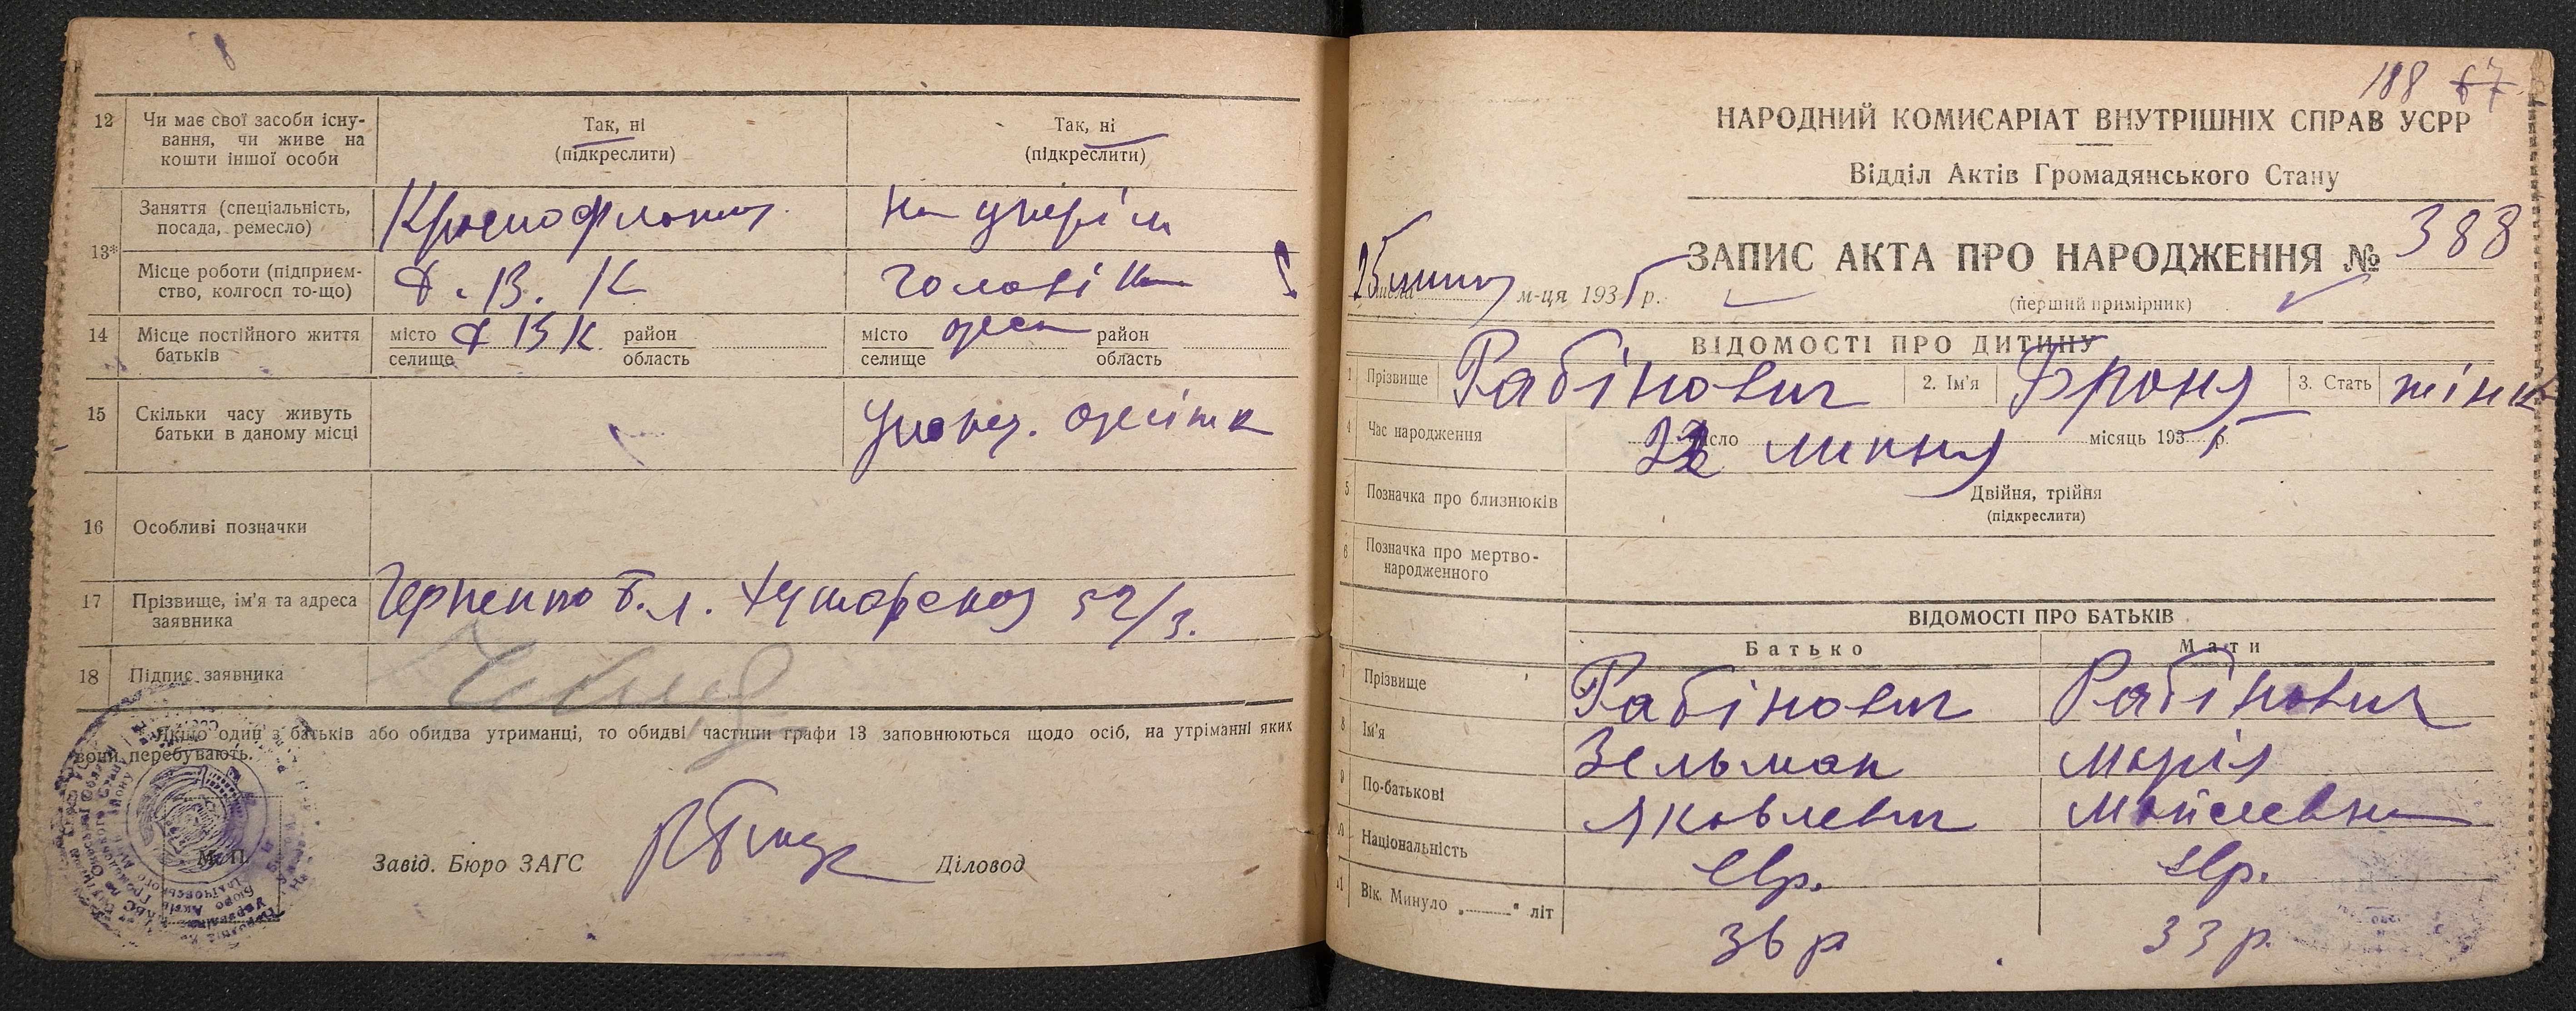 8
12 Чи має свої засоби існу-
вання, чи живе на
кошти іншої особи
Так, ні
(підкреслити)
Так, ні
(підкреслити)
13* Заняття (спеціальність,
посада, ремесло)
Краснофлотец
на утрім
Місце роботи (підприєм-
ство, колгосп то-що)
Д. В. К
чоловіка
14 Місце постійного життя
батьків
місто
селище
Д В К
район
область
місто
селище
Одеса
район
область
15 Скільки часу живуть
батьки в даному місці
16 Особливі позначки
17 Прізвище, ім'я та адреса
заявника
52/3.
18 Підпис заявника
Якщо один з батьків або обидва утриманці, то обидві частини графи 13 заповнюються щодо осіб, на утріманні яких
вони перебувають.
М. П.
Завід. Бюро ЗАГС
Діловод
188 67
НАРОДНИЙ КОМИСАРІАТ ВНУТРІШНІХ СПРАВ УСРР
Відділ Актів Громадянського Стану
ЗАПИС АКТА ПРО НАРОДЖЕННЯ № 388
25 числа липня м-ця 1935 р.
(перший примірник)
ВІДОМОСТІ ПРО ДИТИНУ
1 Прізвище Рабінович 2. Ім'я Броня 3. Стать жінк
4 Час народження
22 число липня місяць 1935 р.
5 Позначка про близнюків
Двійня, трійня
(підкреслити)
6 Позначка про мертво-
народженного
ВІДОМОСТІ ПРО БАТЬКІВ
Батько Мати
7 Прізвище Рабінович Рабінович
8 Ім'я Зельман Марія
9 По-батькові Яковлевич Мойсеевна
10 Національність евр. евр.
11 Вік. Минуло „ “ літ 36 р 33 р.